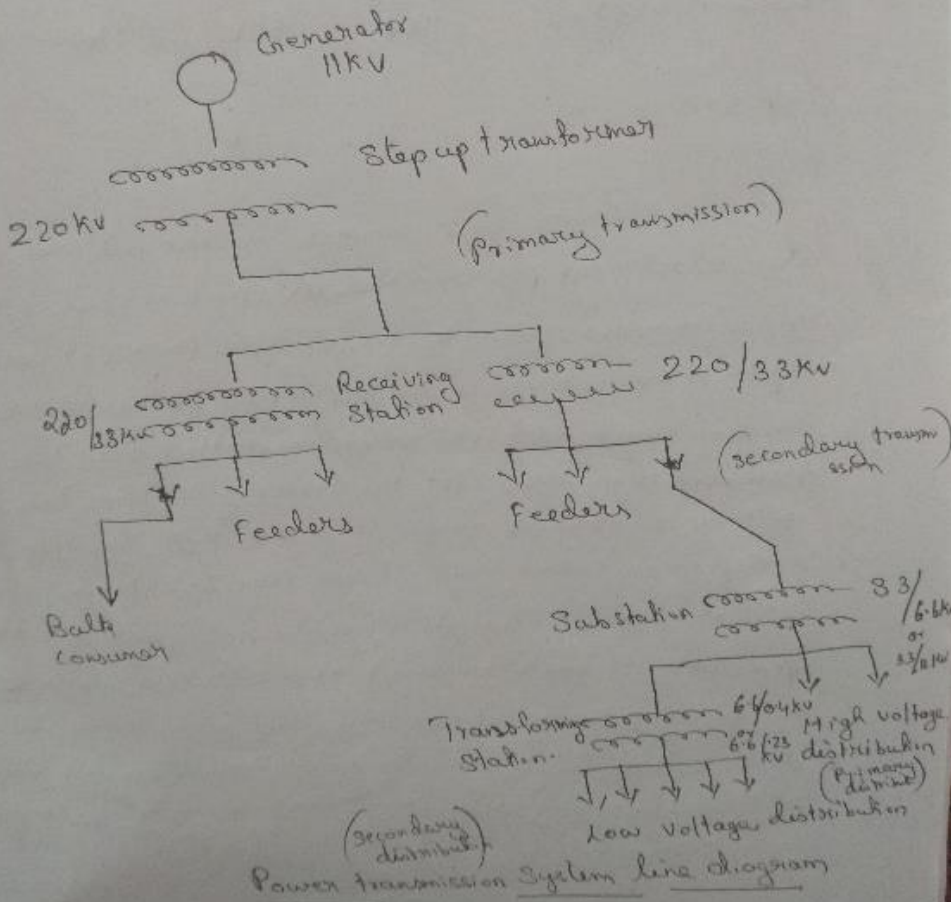 Generator
11KV
Step up transformer
220KV
(Primary transmission)
220/
33KV
Receiving
Station
220/33KV
(secondary transmi
ssion
Feeders
Feeders
Bulk
consumer
Substation
33/
6.6K
or
33/11KV
Transforming
Station.
6.6/0.4KV
or
6.6/.23
KV
High voltage
distribution
(Primary
distribut)
Low voltage distribution
(secondary
distribut)
Power transmission system line diagram